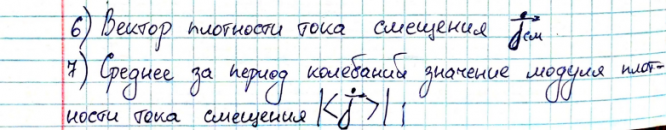 6) Вектор плотности тока смещения j⃗см
7) Среднее за период колебаний значение модуля плот-
ности тока смещения |<j⃗>|;